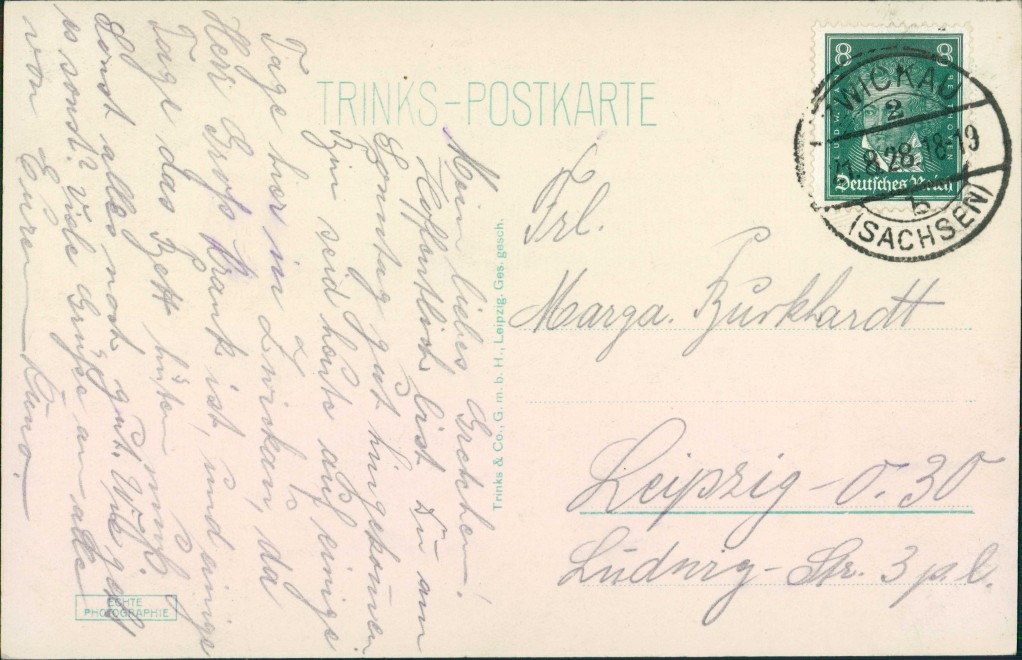 TRINKS-POSTKARTE
Mein liebes Gretchen!
Hoffentlich bist Du am
Sonntag gut hingekommen.
Bin seid heute auf einige
Tage hier in Zwickau, da
Herr Groß krank ist, und einige
Tage das Bett hüten muß.
Sonst alles noch gut. Wie geht
es sonst? Viele Grüße an alle
von Euren Kuno.
Trinks & Co., G. m. b. H., Leipzig. Ges. gesch.
ECHTE
PHOTOGRAPHIE
8 8
Deutsches Reich
ZWICKAU
2
21.8.28.18-19
b
(SACHSEN)
Frl.
Marga. Burkhardt
Leipzig-O. 30
Ludwig-Str. 3 pl.